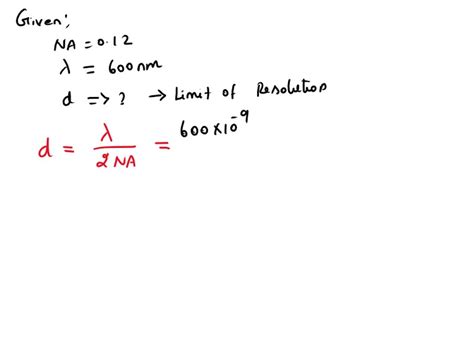 Given:
NA = 0.12
λ = 600nm
d => ? → Limit of Resolution
d = λ / 2 NA = 600×10⁻⁹